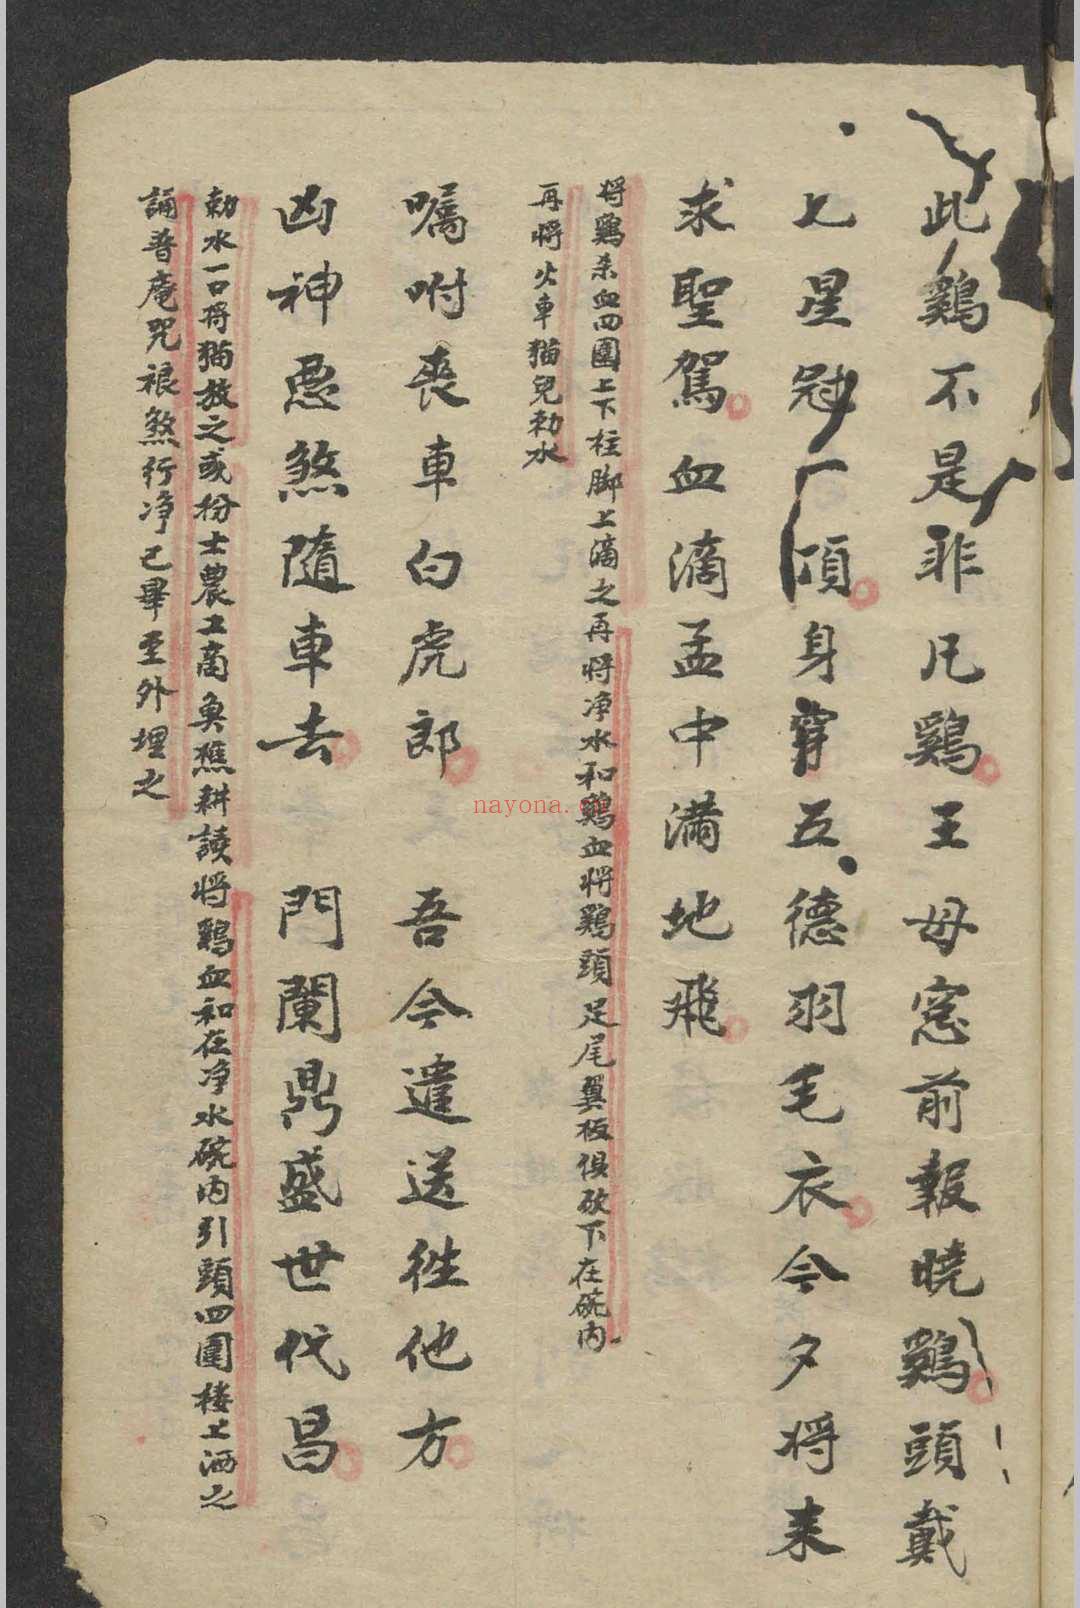 此鷄不是非凡鷄王母窓前報曉鷄頭戴
七星冠一頂身穿五德羽毛衣今夕將来
求聖駕血滴盂中滿地飛
將鷄杀血四圍上下柱脚上滴之再将净水和鷄血將鷄頭足尾翼板俱砍下在碗内
再将火車猫兒勅水
囑咐丧車白虎郎 吾今遣送往他方
凶神惡煞隨車去 門闌鼎盛世代昌
勅水一口将猫放之或扮士農工商魚樵耕讀將鷄血和在净水碗内引頭四圍楼上洒之
誦普庵咒禳煞行净已畢至外埋之
nayona.